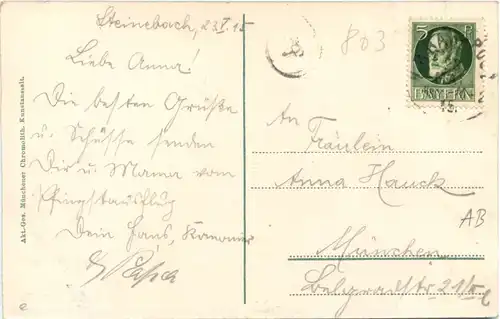 Steinebach, 23/V.15
Liebe Anna!
Die besten Grüße
u. Schüsse senden
Dir u. Mama vom
Pfingstausflug
Dein Hans, Kanonier
u. Papa
An
Fräulein
Anna Hauck
München
Belgradstr 21/II
AB
803
5 Pf
BAYERN
Akt.-Ges. Münchener Chromolith. Kunstanstalt.